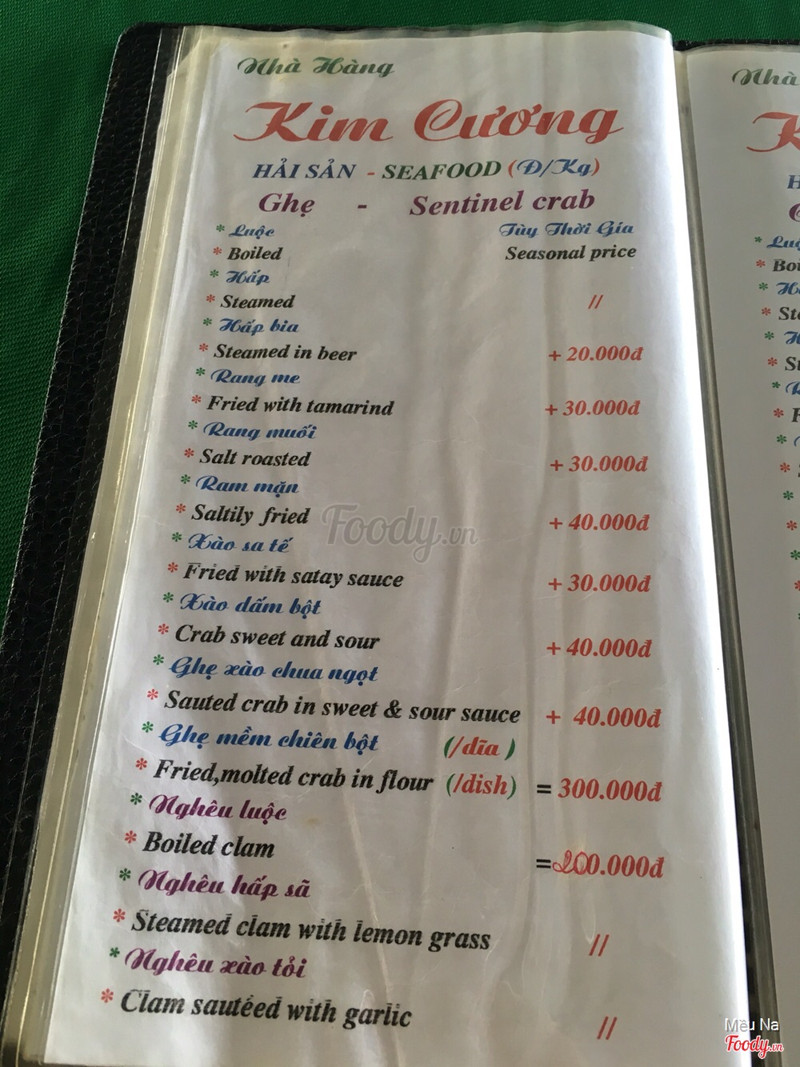 Nhà Hàng
Kim Cương
HẢI SẢN - SEAFOOD (Đ/Kg)
Ghẹ - Sentinel crab
* Luộc Tùy Thời Gía
* Boiled Seasonal price
* Hấp
* Steamed //
* Hấp bia
* Steamed in beer + 20.000đ
* Rang me
* Fried with tamarind + 30.000đ
* Rang muối
* Salt roasted + 30.000đ
* Ram mặn
* Saltily fried + 40.000đ
* Xào sa tế
* Fried with satay sauce + 30.000đ
* Xào dấm bột
* Crab sweet and sour + 40.000đ
* Ghẹ xào chua ngọt
* Sauted crab in sweet & sour sauce + 40.000đ
* Ghẹ mềm chiên bột (/dĩa)
* Fried,molted crab in flour (/dish) = 300.000đ
* Nghêu luộc
* Boiled clam =200.000đ
* Nghêu hấp sã
* Steamed clam with lemon grass //
* Nghêu xào tỏi
* Clam sautéed with garlic //
Foody.vn
Nhà
K
* Luộc
Mều Na
Foody.vn